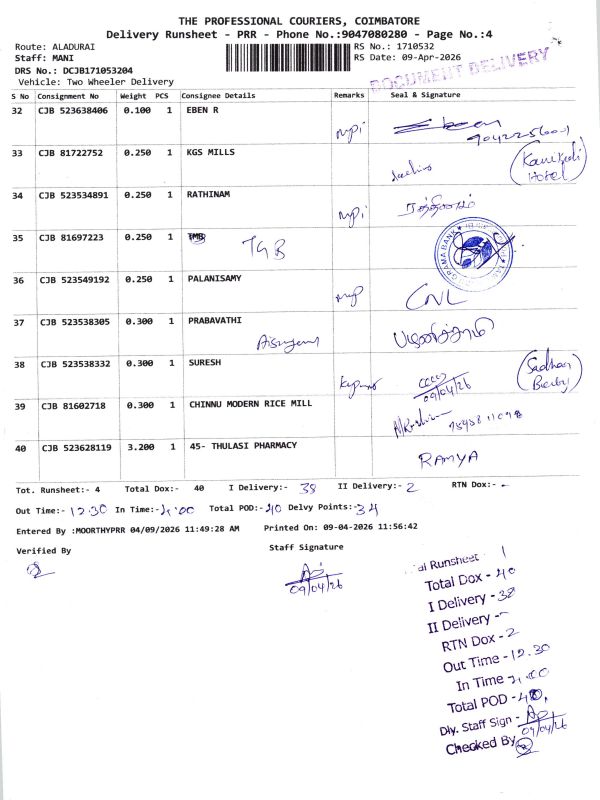 THE PROFESSIONAL COURIERS, COIMBATORE
Delivery Runsheet - PRR - Phone No.:9047080280 - Page No.:4
Route: ALADURAI
RS No.: 1710532
Staff: MANI
RS Date: 09-Apr-2026
DRS No.: DCJB171053204
Vehicle: Two Wheeler Delivery
DOCUMENT DELIVERY
S No Consignment No Weight PCS Consignee Details Remarks Seal & Signature
32 CJB 523638406 0.100 1 EBEN R
33 CJB 81722752 0.250 1 KGS MILLS
Hotel
34 CJB 523534891 0.250 1 RATHINAM
35 CJB 81697223 0.250 1 TMB TGB
GRAMA BANK
36 CJB 523549192 0.250 1 PALANISAMY CNL
37 CJB 523538305 0.300 1 PRABAVATHI
38 CJB 523538332 0.300 1 SURESH
09/04/26
39 CJB 81602718 0.300 1 CHINNU MODERN RICE MILL
40 CJB 523628119 3.200 1 45- THULASI PHARMACY RAMYA
Tot. Runsheet:- 4 Total Dox:- 40 I Delivery:- 38 II Delivery:- 2 RTN Dox:- -
Out Time:- 12.30 In Time:- Total POD:- 40 Delvy Points:- 34
Entered By :MOORTHYPRR 04/09/2026 11:49:28 AM Printed On: 09-04-2026 11:56:42
Verified By Staff Signature
09/04/26
al Runsheet 1
Total Dox - 40
I Delivery - 38
II Delivery - -
RTN Dox - 2
Out Time - 12.30
In Time -
Total POD - 40
Dly. Staff Sign -
09/04/26
Checked By